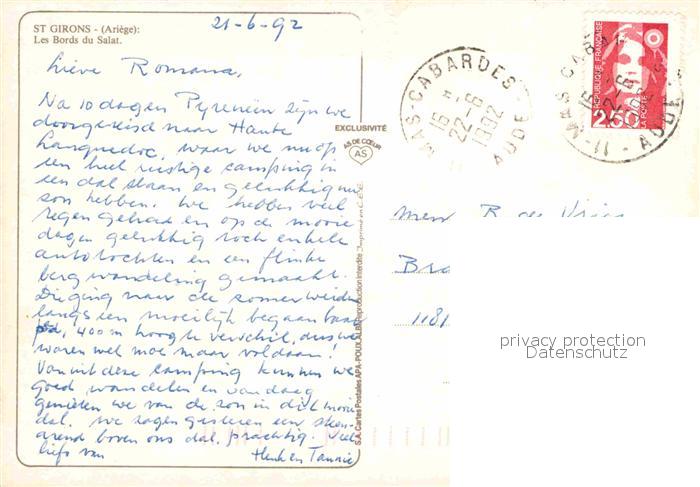 21-6-92
ST GIRONS - (Ariège):
Les Bords du Salat.
Lieve Romana,
Na 10 dagen Pyreneën zijn we
doorgereisd naar Haute
Languedoc, waar we nu op
een heel rustige camping in
een dal staan en gelukkig nu
zon hebben. We hebben veel
regen gehad en op de mooie
dagen gelukkig toch enkele
autotochten en een flinke
bergwandeling gemaakt.
Die ging naar de zomerweiden
langs een moeilijk begaanbaar
pad, 400 m hoogteverschil, dus we
waren wel moe maar voldaan!
Vanuit deze camping kunnen we
goed wandelen en vandaag
genieten we van de zon in dit mooie
dal. We zagen gisteren een steen-
arend boven ons dal, prachtig. Veel
liefs van Henk en
EXCLUSIVITÉ
AS DE CŒUR
AS
S.A. Cartes Postales APA-POUX ALBI Reproduction interdite Imprimé en C.E.E.
MAS-CABARDES
16 H
22-6
1992
AUDE
REPUBLIQUE FRANÇAISE
2,50
LA POSTE
11 - MAS CA
16
22-6
AUDE
Mevr R. de Vries
Bra
1181
privacy protection
Datenschutz